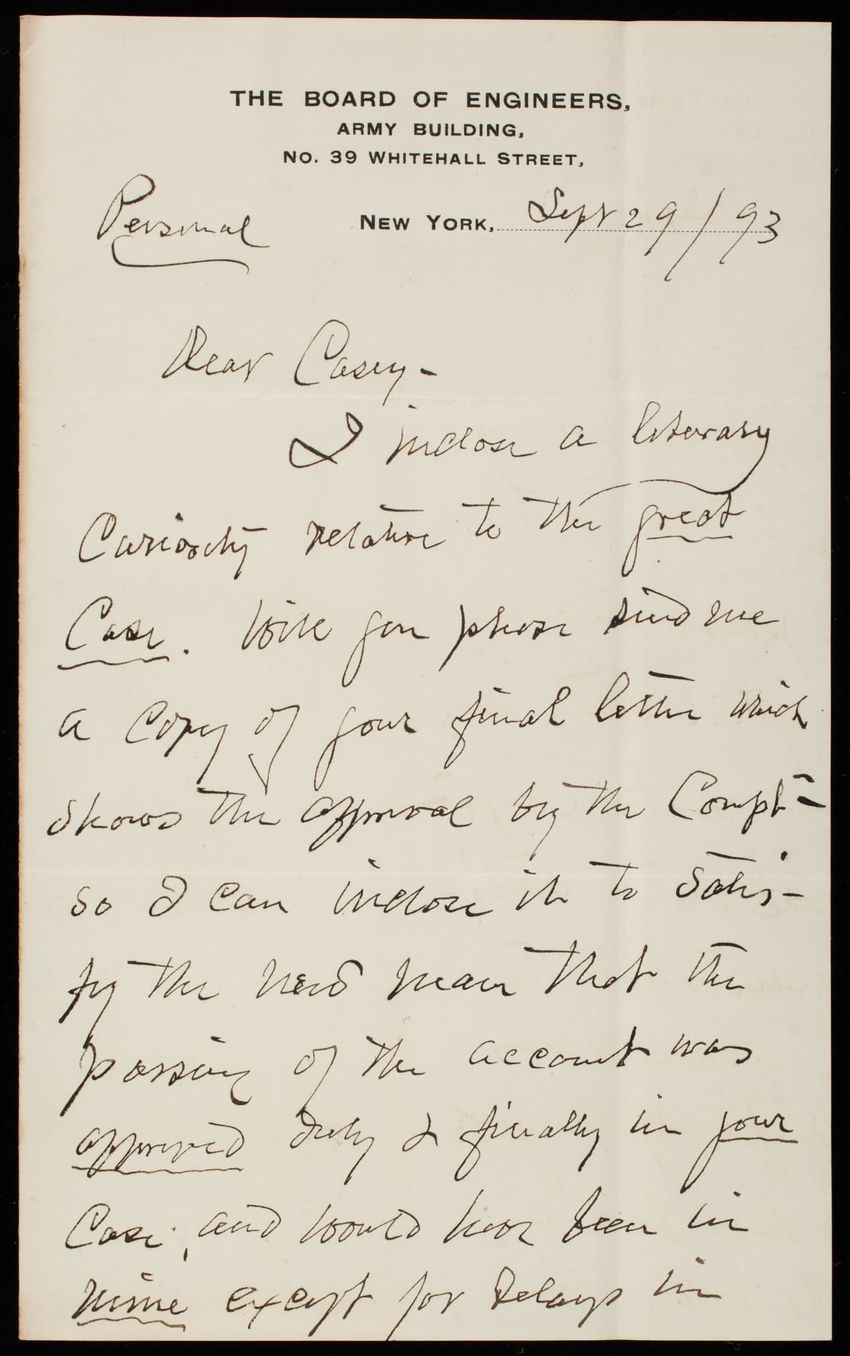 THE BOARD OF ENGINEERS,
ARMY BUILDING,
NO. 39 WHITEHALL STREET,
Personal
NEW YORK, Sept 29/93
Dear Casey -
I inclose a literary
Curiosity relative to the great
Case. Will you please send me
a copy of your final letter which
shows the approval by the Compt
so I can inclose it to satis-
fy the new man that the
passing of the account was
approved duly & finally in your
Case, and would have been in
mine except for delays in